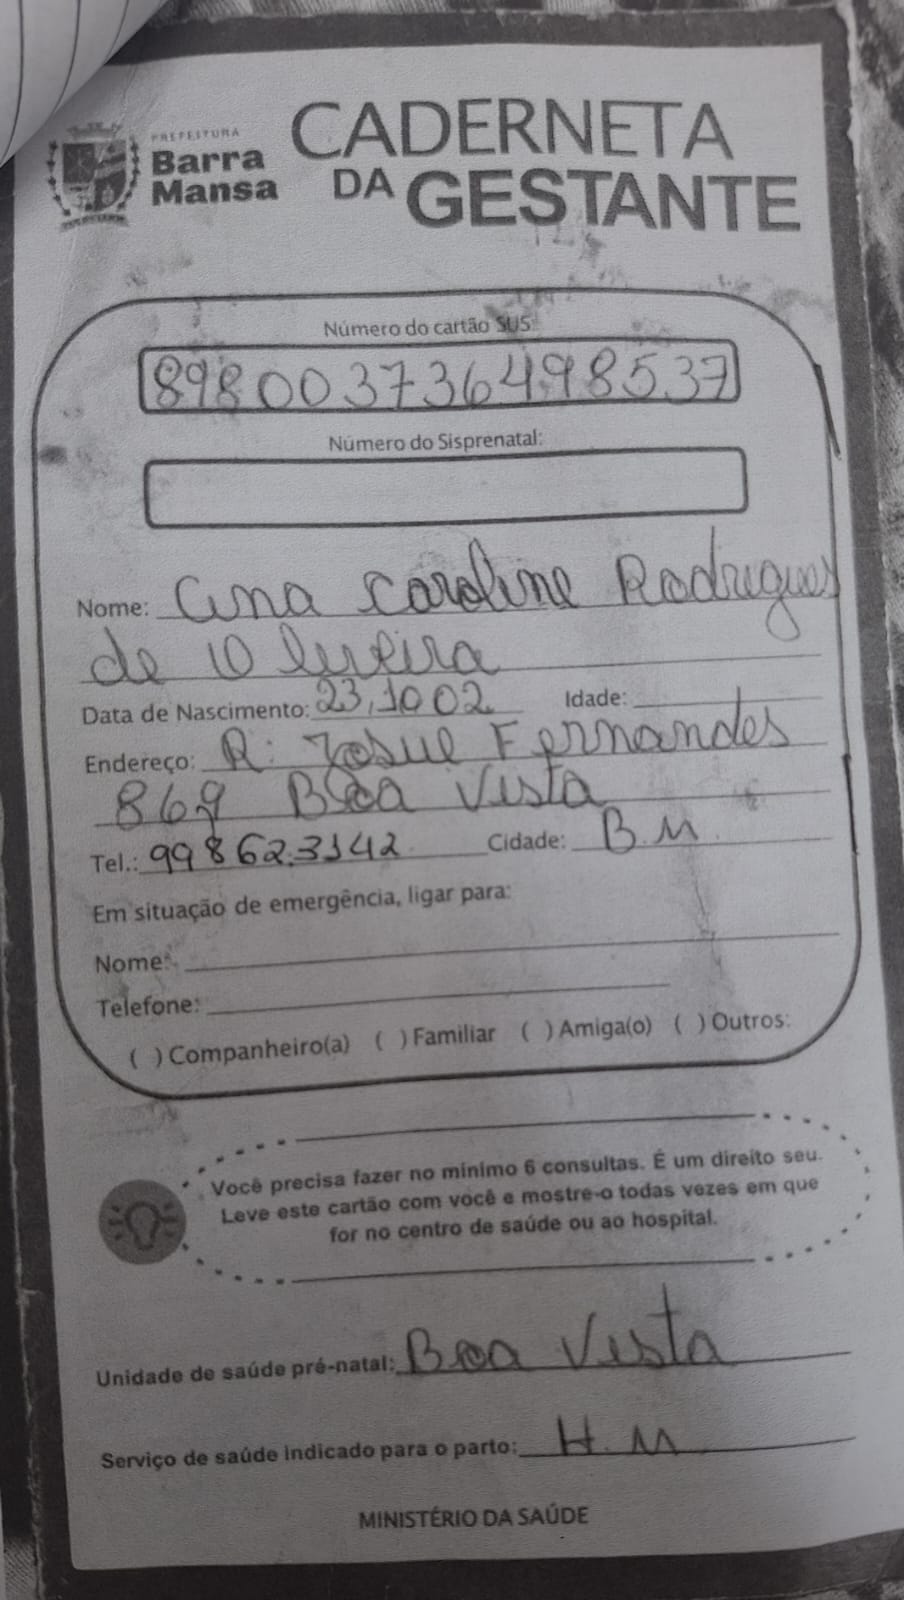 PREFEITURA
Barra
Mansa
CADERNETA
DA GESTANTE
Número do cartão SUS:
898003736498537
Número do Sisprenatal:
Nome: Ana Caroline Rodrigues
de Oliveira
Data de Nascimento: 23,10 02 Idade:
Endereço: R: Josue Fernandes
869 Boa Vista
Tel.: 998623142 Cidade: B.M
Em situação de emergência, ligar para:
Nome:
Telefone:
( ) Companheiro(a) ( ) Familiar ( ) Amiga(o) ( ) Outros:
Você precisa fazer no mínimo 6 consultas. É um direito seu.
Leve este cartão com você e mostre-o todas vezes em que
for no centro de saúde ou ao hospital.
Unidade de saúde pré-natal: Boa Vista
Serviço de saúde indicado para o parto: H.M
MINISTÉRIO DA SAÚDE